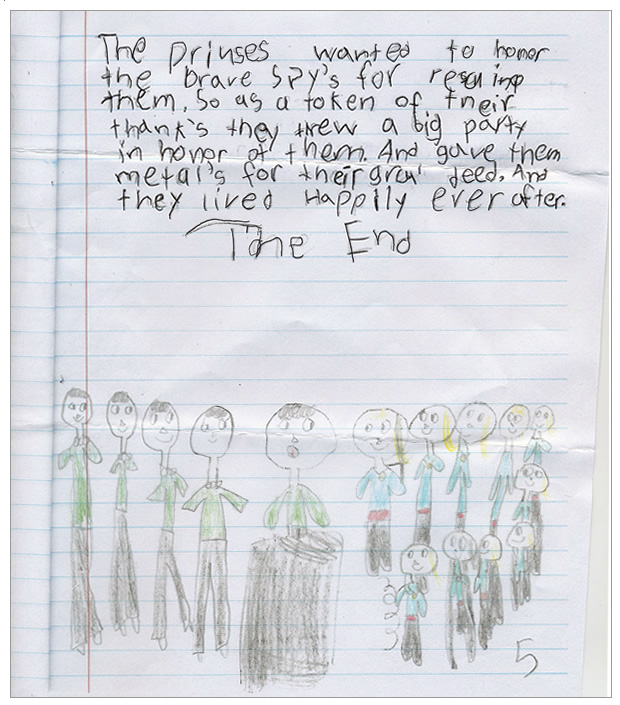 The prinses wanted to honor
the brave spy's for resauinp
them, So as a token of their
thank's they trew a big party
in honor of them. And gave them
metal's for their grea' deed. And
they lived Happily ever after.
The End
5